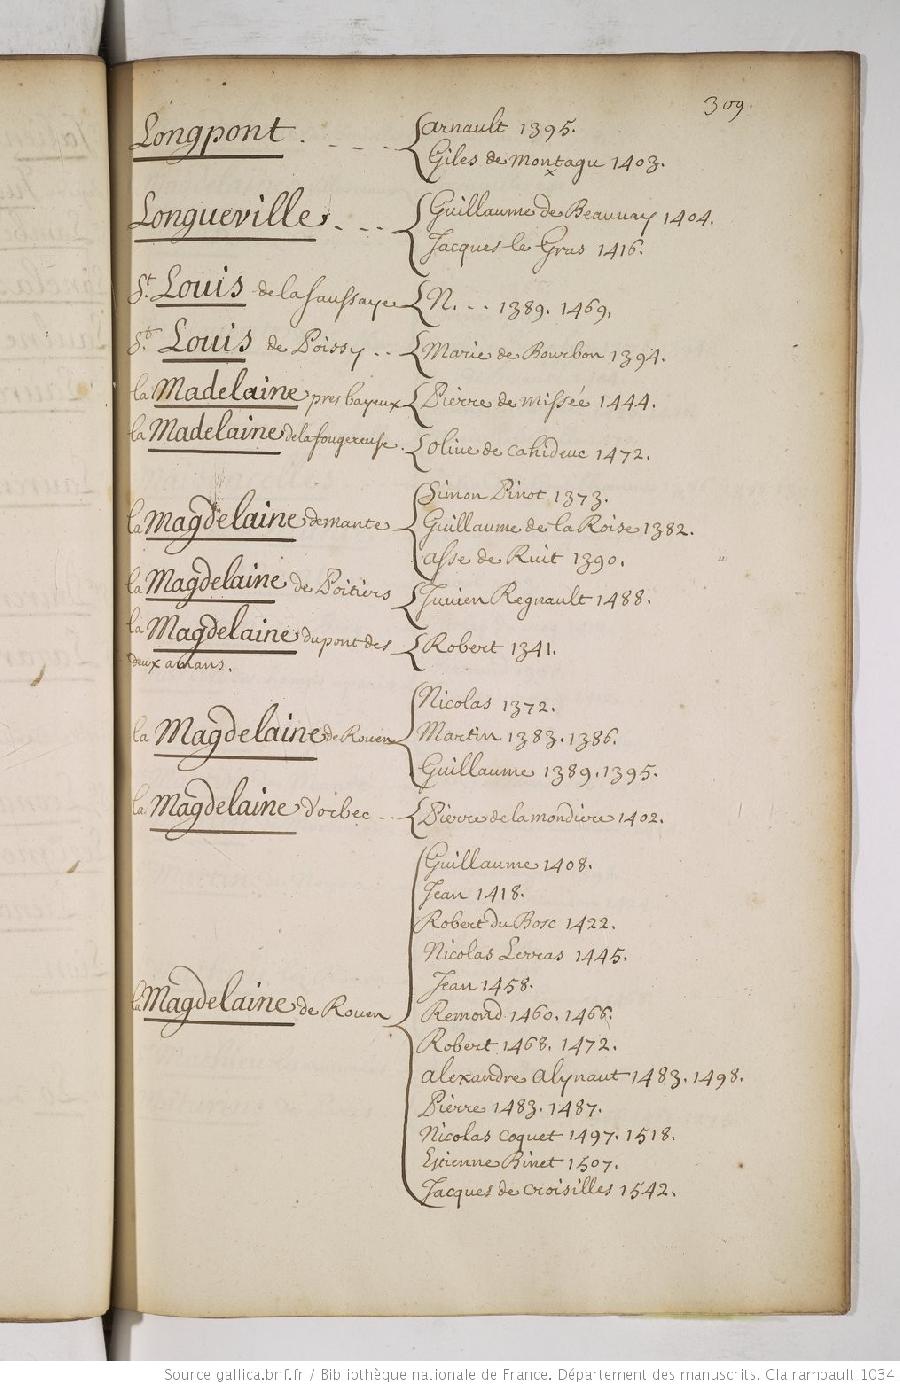 309.
Longpont. - - - - arnault 1395.
Giles de Montagu 1403.
Longueville. - - - Guillaume de Beaunay 1404.
Jacques le Gras 1416.
St. Louis de la saussaye N. - - 1389. 1469.
St. Louis de Poissy . . Marie de Bourbon 1394.
la Madelaine pres bayeux Pierre de missée 1444.
la Madelaine de la fougereuse. olive de cahideuc 1472.
Simon Pinot 1373.
la Magdelaine de mante Guillaume de la Roise 1382.
asse de Ruit 1390.
la Magdelaine de Poitiers Regnault 1488.
la Magdelaine du pont des Robert 1341.
deux amans.
Nicolas 1372.
la Magdelaine de Rouen Martin 1383. 1386.
Guillaume 1389. 1395.
la Magdelaine d'orbec - - - Pierre de la mondiere 1402.
Guillaume 1408.
Jean 1418.
Robert du Bosc 1422.
Nicolas 1445.
Jean 1458.
la Magdelaine de Rouen Remond 1460. 1466.
Robert 1468. 1472.
alexandre alynaut 1483. 1498.
Pierre 1483. 1487.
Nicolas coquet 1497. 1518.
Etienne Binet 1507.
Jacques de croisilles 1542.
Source gallica.bnf.fr / Bibliothèque nationale de France. Département des manuscrits. Clairambault 1034